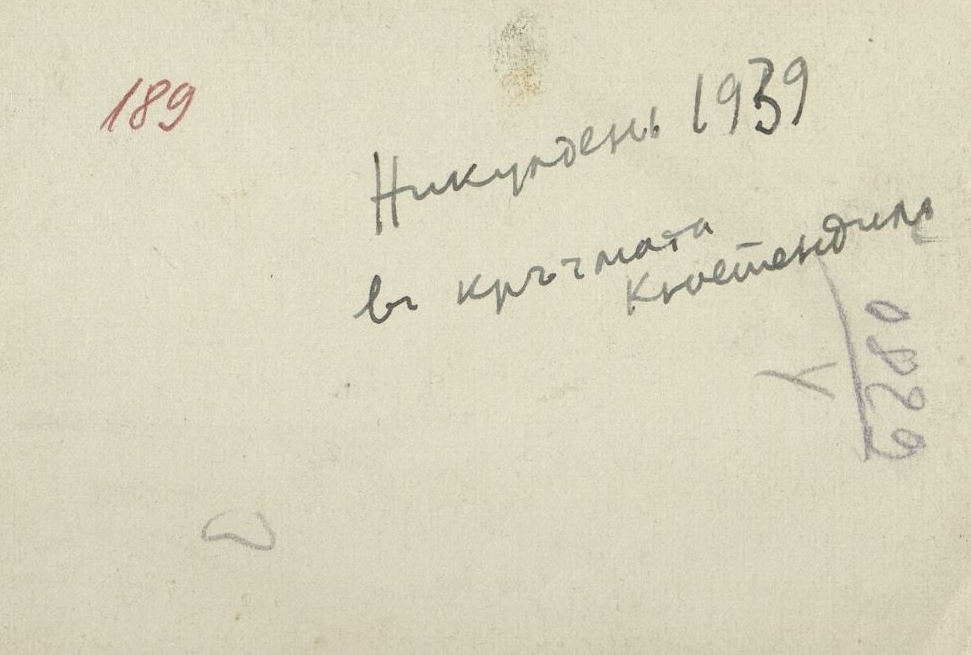 189
Никулденъ 1939
въ кръчмата
Кюстендилъ